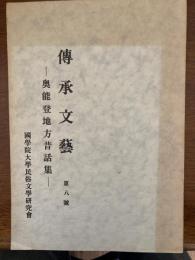 傳承文藝
第八號
―奥能登地方昔話集―
國學院大學民俗文學研究會